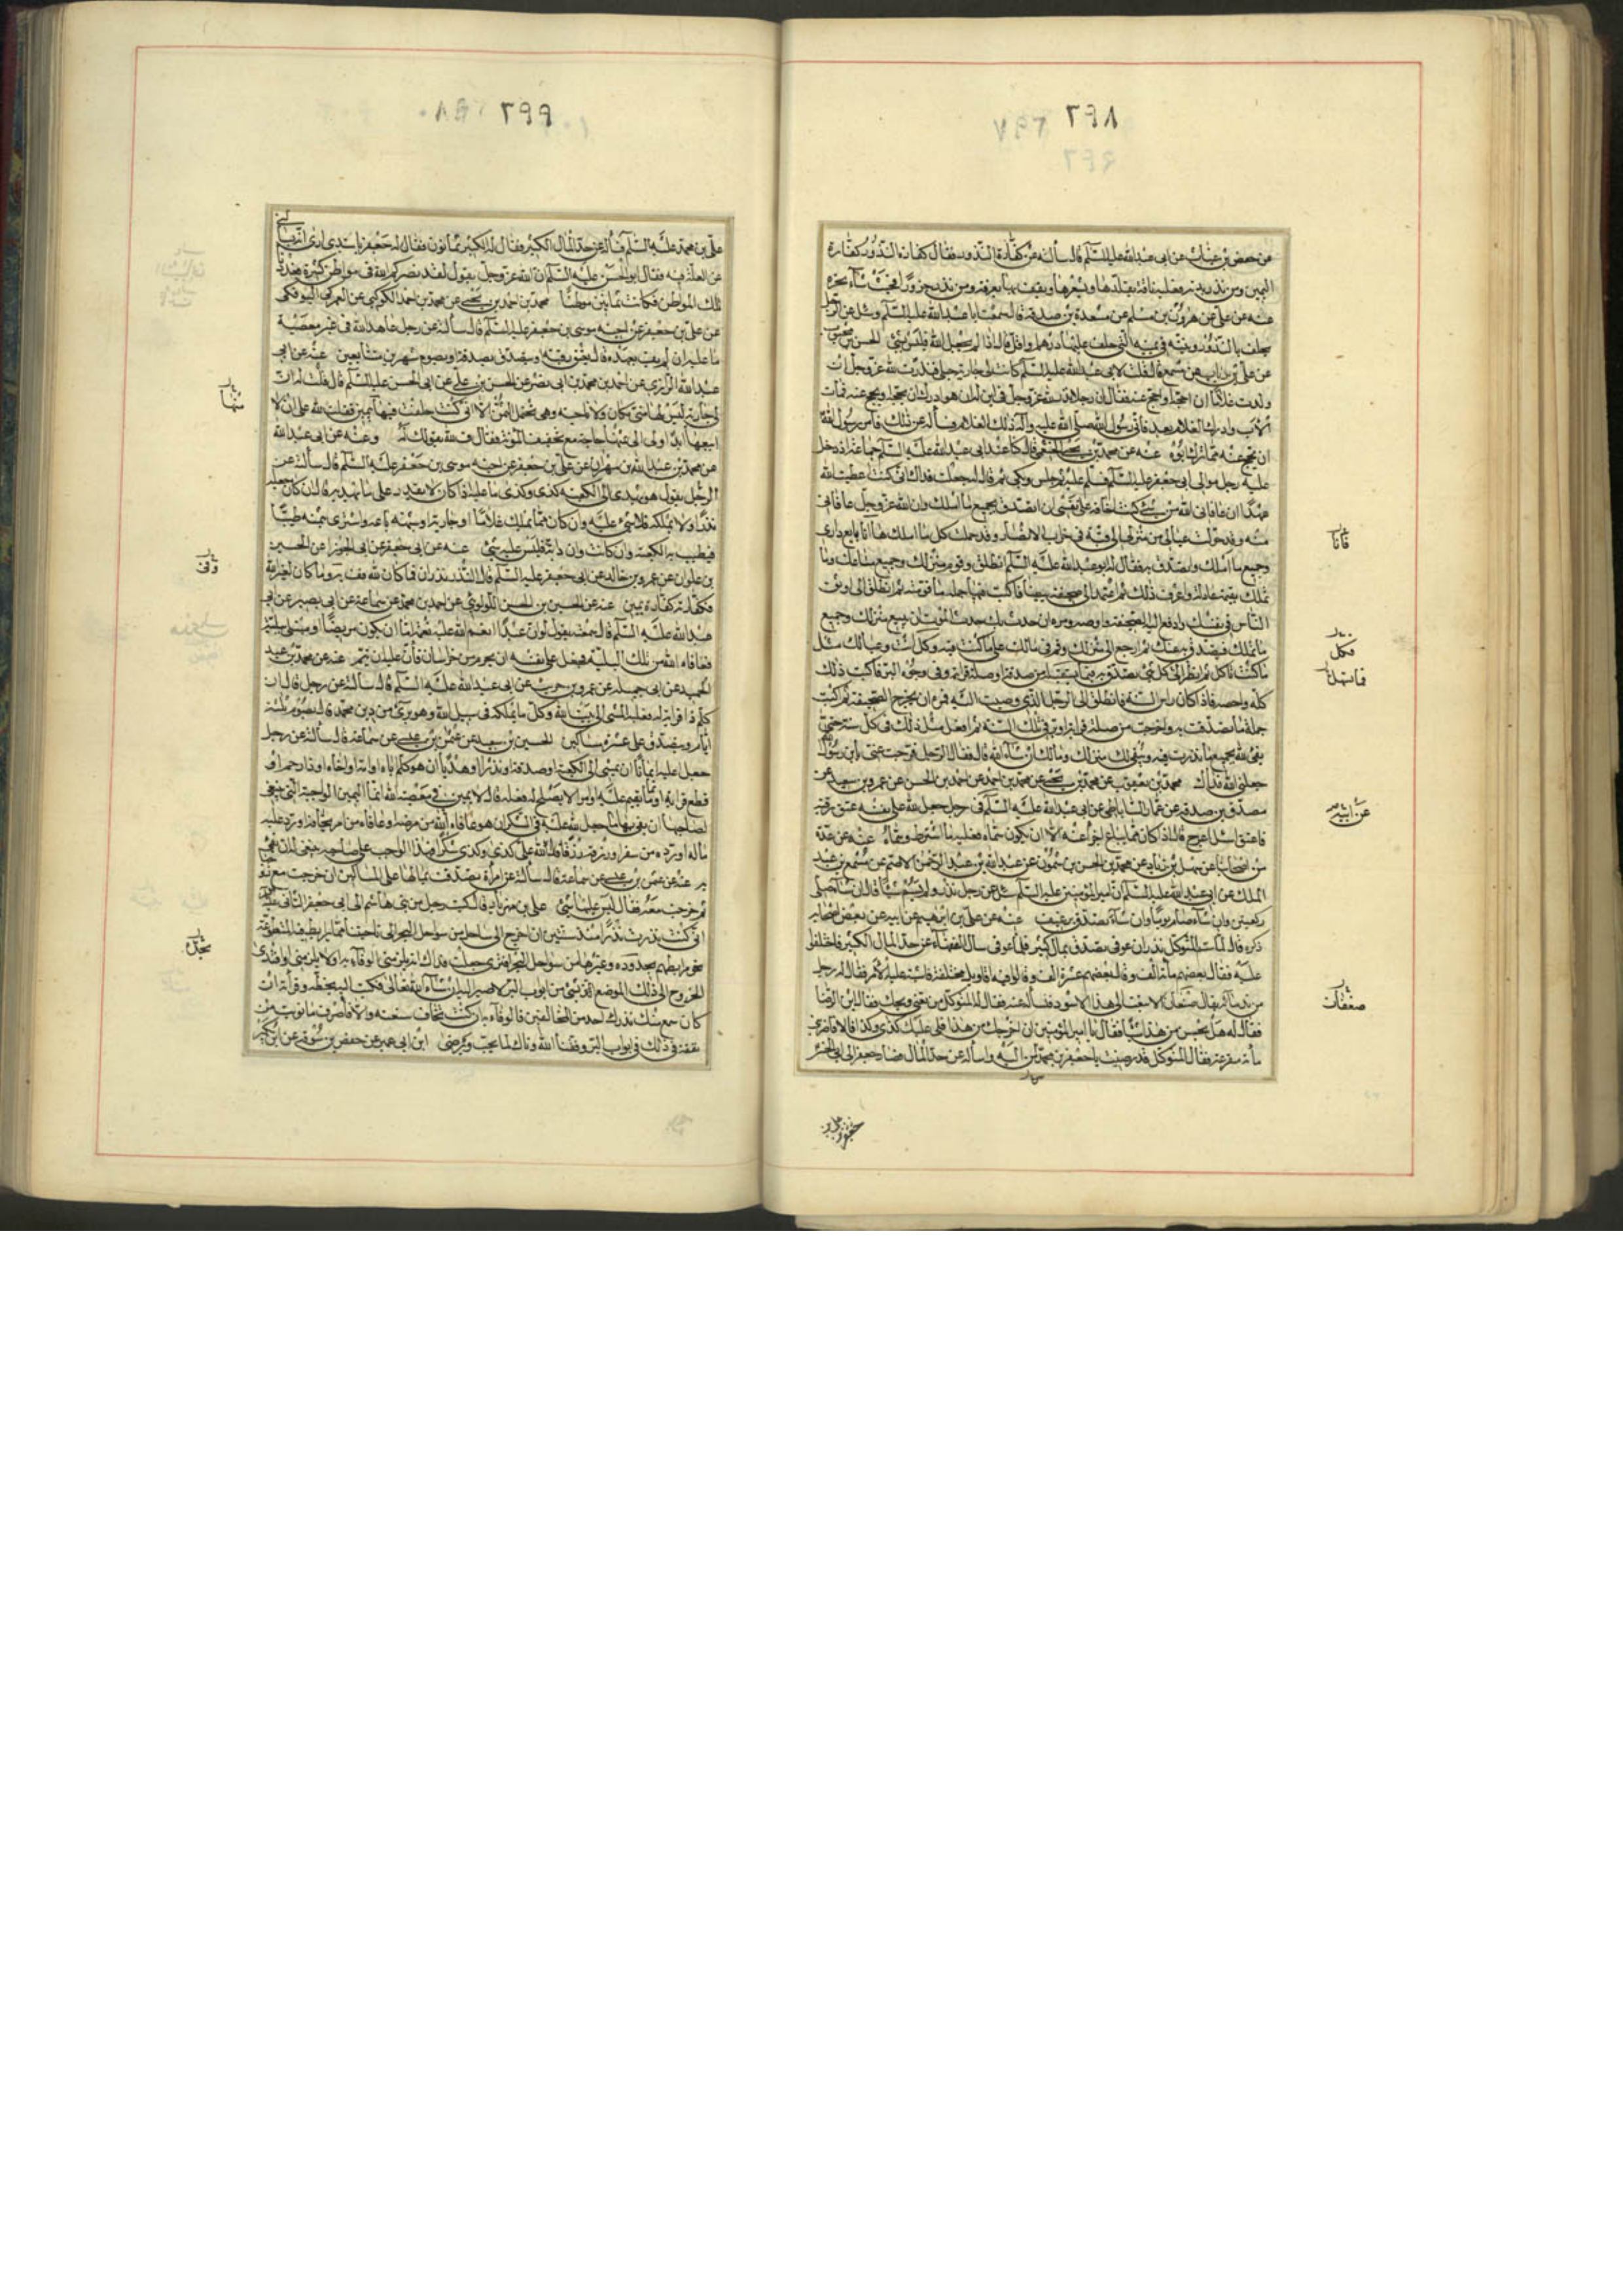 ٢٩٨
عن حفص بن غياث عن ابى عبدالله عليه السلم قال سألته عن كفارة النذور فقال كفارة النذور كفارة
اليمين ومن نذر بدنة فعليه ناقة يقلدها ويشعرها ويقف بها بعرفة ومن نذر جزورا فحيث شآء نحره
عنه عن على عن هرون بن مسلم عن مسعدة بن صدقة قال سمعت ابا عبدالله عليه السلم وسئل عن الرجل
يحلف بالنذور ونيته فى يمينه التى حلف عليها درهم واقل قال اذا لم يجعل لله فليس بشئ الحسن بن محبوب
عن على بن رئاب عن مسمع قال قلت لابى عبدالله عليه السلم كانت لى جارية حبلى فنذرت لله عز وجل ان
ولدت غلاما ان احجه او احج عنه فقال ان رجلا نذر لله عز وجل فى ابن له ان هو ادرك ان يحجه او يحج عنه فمات
الاب وادرك الغلام بعد فاتى رسول الله صلى الله عليه وآله ذلك الغلام فسأله عن ذلك فأمر رسول الله
ان يحج عنه مما ترك ابوه عنه عن محمد بن يحيى الخثعمى قال كنا عند ابى عبدالله عليه السلم جماعة اذ دخل
عليه رجل من موالى ابى جعفر عليه السلم فسلم عليه ثم جلس وبكى ثم قال له جعلت فداك انى كنت اعطيت الله
عهدا ان عافانى الله من شئ كنت اخافه على نفسى ان اتصدق بجميع ما املك وان الله عز وجل عافانى
منه وقد حولت عيالى من منزلى الى قبة فى خراب الانصار وقد حملت كل ما املك فانا بايع دارى
وجميع ما املك واتصدق به فقال له ابو عبدالله عليه السلم انطلق وقوم منزلك وجميع متاعك وما
تملك بقيمة عادلة واعرف ذلك ثم اعمد الى صحيفة بيضا فاكتب فيها جملة ما قومته ثم انطلق الى اوثق
الناس فى نفسك وادفع اليه الصحيفة واوصه ومره ان حدث بك حدث الموت ان يبيع منزلك وجميع
ما تملك فيتصدق به عنك ثم ارجع الى منزلك وقم فى مالك على ما كنت فيه وكل انت وعيالك مثل
ما كنت تاكل ثم انظر الى كل شئ تصدق به فيما يستقبل من صدقة او صلة قرابة وفى وجوه البر فاكتب ذلك
كله واحصه فاذا كان راس السنة فانطلق الى الرجل الذى وصيت اليه فمره ان يخرج الصحيفة ثم اكتب
جملة ما تصدقت به واخرجت من صلة قرابة او بر فى تلك السنة ثم افعل مثل ذلك فى كل سنة حتى
تفى لله بجميع ما نذرت فيه ويبقى لك منزلك ومالك ان شآء الله قال فقال الرجل فرجت عنى يا بن رسول الله
جعلنى الله فداك محمد بن يعقوب عن محمد بن يحيى عن محمد بن احمد عن احمد بن الحسن عن عمرو بن سعيد عن
مصدق بن صدقة عن عمار الساباطى عن ابى عبدالله عليه السلم فى رجل جعل لله على نفسه عتق رقبة
فاعتق اشل اعرج قال اذا كان مما يباع اجزأ عنه الا ان يكون سماه فعليه ما اشترط وسماه عنه عن عدة
من اصحابنا عن سهل بن زياد عن محمد بن الحسن بن شمون عن عبدالله بن عبد الرحمن الاصم عن مسمع بن عبد
الملك عن ابى عبدالله عليه السلم ان امير المؤمنين عليه السلم سئل عن رجل نذر ولم يسم شيئا قال ان شآء صلى
ركعتين وان شآء صام يوما وان شآء تصدق برغيف عنه عن على بن ابرهيم عن ابيه عن بعض اصحابه
ذكره قال لما سم المتوكل نذر ان عوفى يتصدق بمال كثير فلما عوفى سال الفقهآء عن حد المال الكثير فاختلفوا
عليه فقال بعضهم مأة الف وقال بعضهم عشرة الف وقالوا فيه اقاويل مختلفة فاشتبه عليه الامر فقال له رجل
من ندمآئه يقال صفعان الا تبعث الى هذا الاسود فتسأله عنه فقال له المتوكل من تعنى ويحك فقال ابن الرضا
فقال له هل يحسن من هذا شيئا فقال يا امير المؤمنين ان اخرجك من هذا فلى عليك كذى وكذا فالا فاضربنى
مأة مقرعة فقال المتوكل قد رضيت يا جعفر بن محمود صر اليه واسأله عن حد المال فصار جعفر الى ابى الحسن
فانا
فكل
عن ابيه
صفعان
٢٩٩
على بن محمد عليه السلم فسأله عن حد المال الكثير فقال له الكثير ثمانون فقال له جعفر يا سيدى ارى انه يسألنى
عن العلة فيه فقال ابو الحسن عليه السلم ان الله عز وجل يقول لقد نصركم الله فى مواطن كثيرة فعددنا
تلك المواطن فكانت ثمانين موطنا محمد بن احمد بن يحيى عن محمد بن احمد الكوكبى عن العمركى البوفكى
عن على بن جعفر عن اخيه موسى بن جعفر عليه السلم قال سألته عن رجل عاهد الله فى غير معصية
ما عليه ان لم يف بعهده قال يعتق رقبة او يتصدق بصدقة او يصوم شهرين متتابعين عنه عن ابى
عبد الله الرازى عن احمد بن محمد بن ابى نصر عن الحسن بن على عن ابى الحسن عليه السلم قال قلت له ان
لى جارية ليس لها منى مكان ولا ناحية وهى تحتمل الثمن الا انى كنت حلفت فيها بيمين فقلت لله على ان لا
ابيعها ابدا ولى الى ثمنها حاجة مع تخفيف المؤنة فقال ف لله بقولك له وعنه عن ابى عبد الله
عن محمد بن عبد الله بن مهران عن على بن جعفر عن اخيه موسى بن جعفر عليه السلم قال سألته عن
الرجل يقول هو يهدى الى الكعبة كذى وكذى ما عليه اذا كان لا يقدر على ما يهديه قال ان كان جعله
نذرا ولا يملكه فلا شئ عليه وان كان مما يملك غلاما او جارية او شبهه باعه واشترى بثمنه طيبا
فيطيب به الكعبة وان كانت دابة فليس عليه شئ عنه عن ابى جعفر عن ابى الجوزا عن الحسين
بن علوان عن عمرو بن خالد عن ابى جعفر عليه السلم قال النذر نذران فما كان لله فف به وما كان لغير الله
فكفارته كفارة يمين عنه عن الحسين بن الحسن اللولوئى عن احمد بن محمد عن سماعة عن ابى بصير عن ابى
عبد الله عليه السلم قال سمعته يقول لو ان عبدا انعم الله عليه نعمة اما ان يكون مريضا او مبتلى ببلية
فعافاه الله من تلك البلية فجعل على نفسه ان يحرم من خراسان فان عليه ان يتم عنه عن محمد بن عبد
الحميد عن ابى جميلة عن عمرو بن حريث عن ابى عبد الله عليه السلم قال سألته عن رجل قال ان
كلم ذا قرابة له فعليه المشى الى بيت الله وكل ما يملكه فى سبيل الله وهو برئ من دين محمد قال يصوم ثلثة
ايام ويتصدق على عشرة مساكين الحسين بن سعيد عن عثمن بن عيسى عن سماعة قال سألته عن رجل
جعل عليه ايمانا ان يمشى الى الكعبة او صدقة او نذرا او هديا ان هو كلم اباه او امه او اخاه او ذا رحم او
قطع قرابة او ماثم يقيم عليه او امر لا يصلح له فعله قال لا يمين فى معصية الله انما اليمين الواجبة التى ينبغى
لصاحبها ان يفى بها ما جعل لله عليه فى الشكر ان هو عافاه الله من مرضه او عافاه من امر يخافه او رد عليه
ماله او رده من سفر او رزقه رزقا فقال لله على كذى وكذى شكرا فهذا الواجب على صاحبه ينبغى له ان يفى
به عنه عن عثمن بن عيسى عن سماعة قال سألته عن امرأة تصدقت بمالها على المساكين ان خرجت مع زوجها
ثم خرجت معه فقال ليس عليها شئ على بن مهزيار قال كتب رجل من بنى هاشم الى ابى جعفر الثانى عليه السلم
انى كنت نذرت نذرا منذ سنتين ان اخرج الى ساحل من سواحل البحر الى ناحيتنا مما يرابط فيه المتطوعة
نحو مرابطهم بجدة وغيرها من سواحل البحر افترى جعلت فداك انه يلزمنى الوفآء به او لا يلزمنى او افتدى
الخروج الى ذلك الموضع بشئ من ابواب البر لاصير اليه ان شآء الله تعالى فكتب اليه بخطه وقرأته ان
كان سمع منك نذرك احد من المخالفين فالوفآء به ان كنت تخاف شنعته والا فاصرف ما نويت من
نفقة فى ذلك فى ابواب البر وفقنا الله واياك لما يحب ويرضى ابن ابى عمير عن حفص بن سوقة عن ابن بكير
منها
وفى
يحل